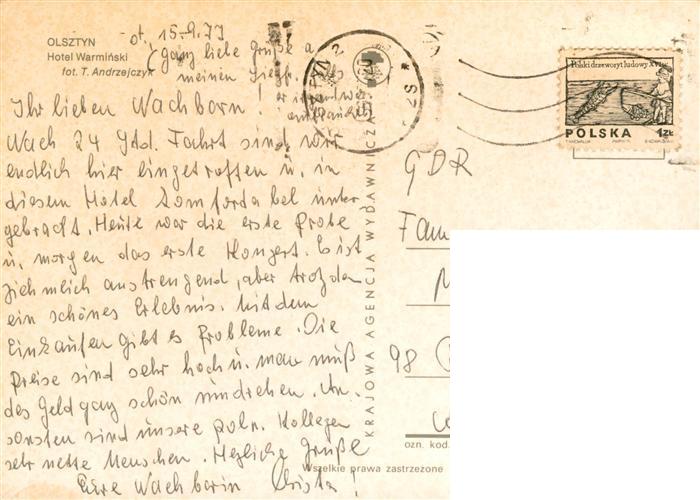 OLSZTYN
Hotel Warmiński
fot. T. Andrzejczyk
15.9.77
(ganz liebe Grüße a
meinen
Ihr lieben Nachbarn!
Nach 24 Std. Fahrt sind wir
endlich hier eingetroffen u. in
diesem Hotel komfortabel unter
gebracht. Heute war die erste Probe
u. morgen das erste Konzert. Es ist
ziehmlich anstrengend, aber trotzdem
ein schönes Erlebnis. Mit dem
Einkaufen gibt es Probleme. Die
Preise sind sehr hoch u. man muß
das Geld ganz schön umdrehen. An-
sonsten sind unsere poln. Kollegen
sehr nette Menschen. Herzliche Grüße
Eure Nachbarin Christa!
KRAJOWA AGENCJA WYDAWNICZA
Polski drzeworyt ludowy XVI w.
POLSKA 1ZŁ
GDR
Fam
M
98
ozn. kod.
Wszelkie prawa zastrzeżone